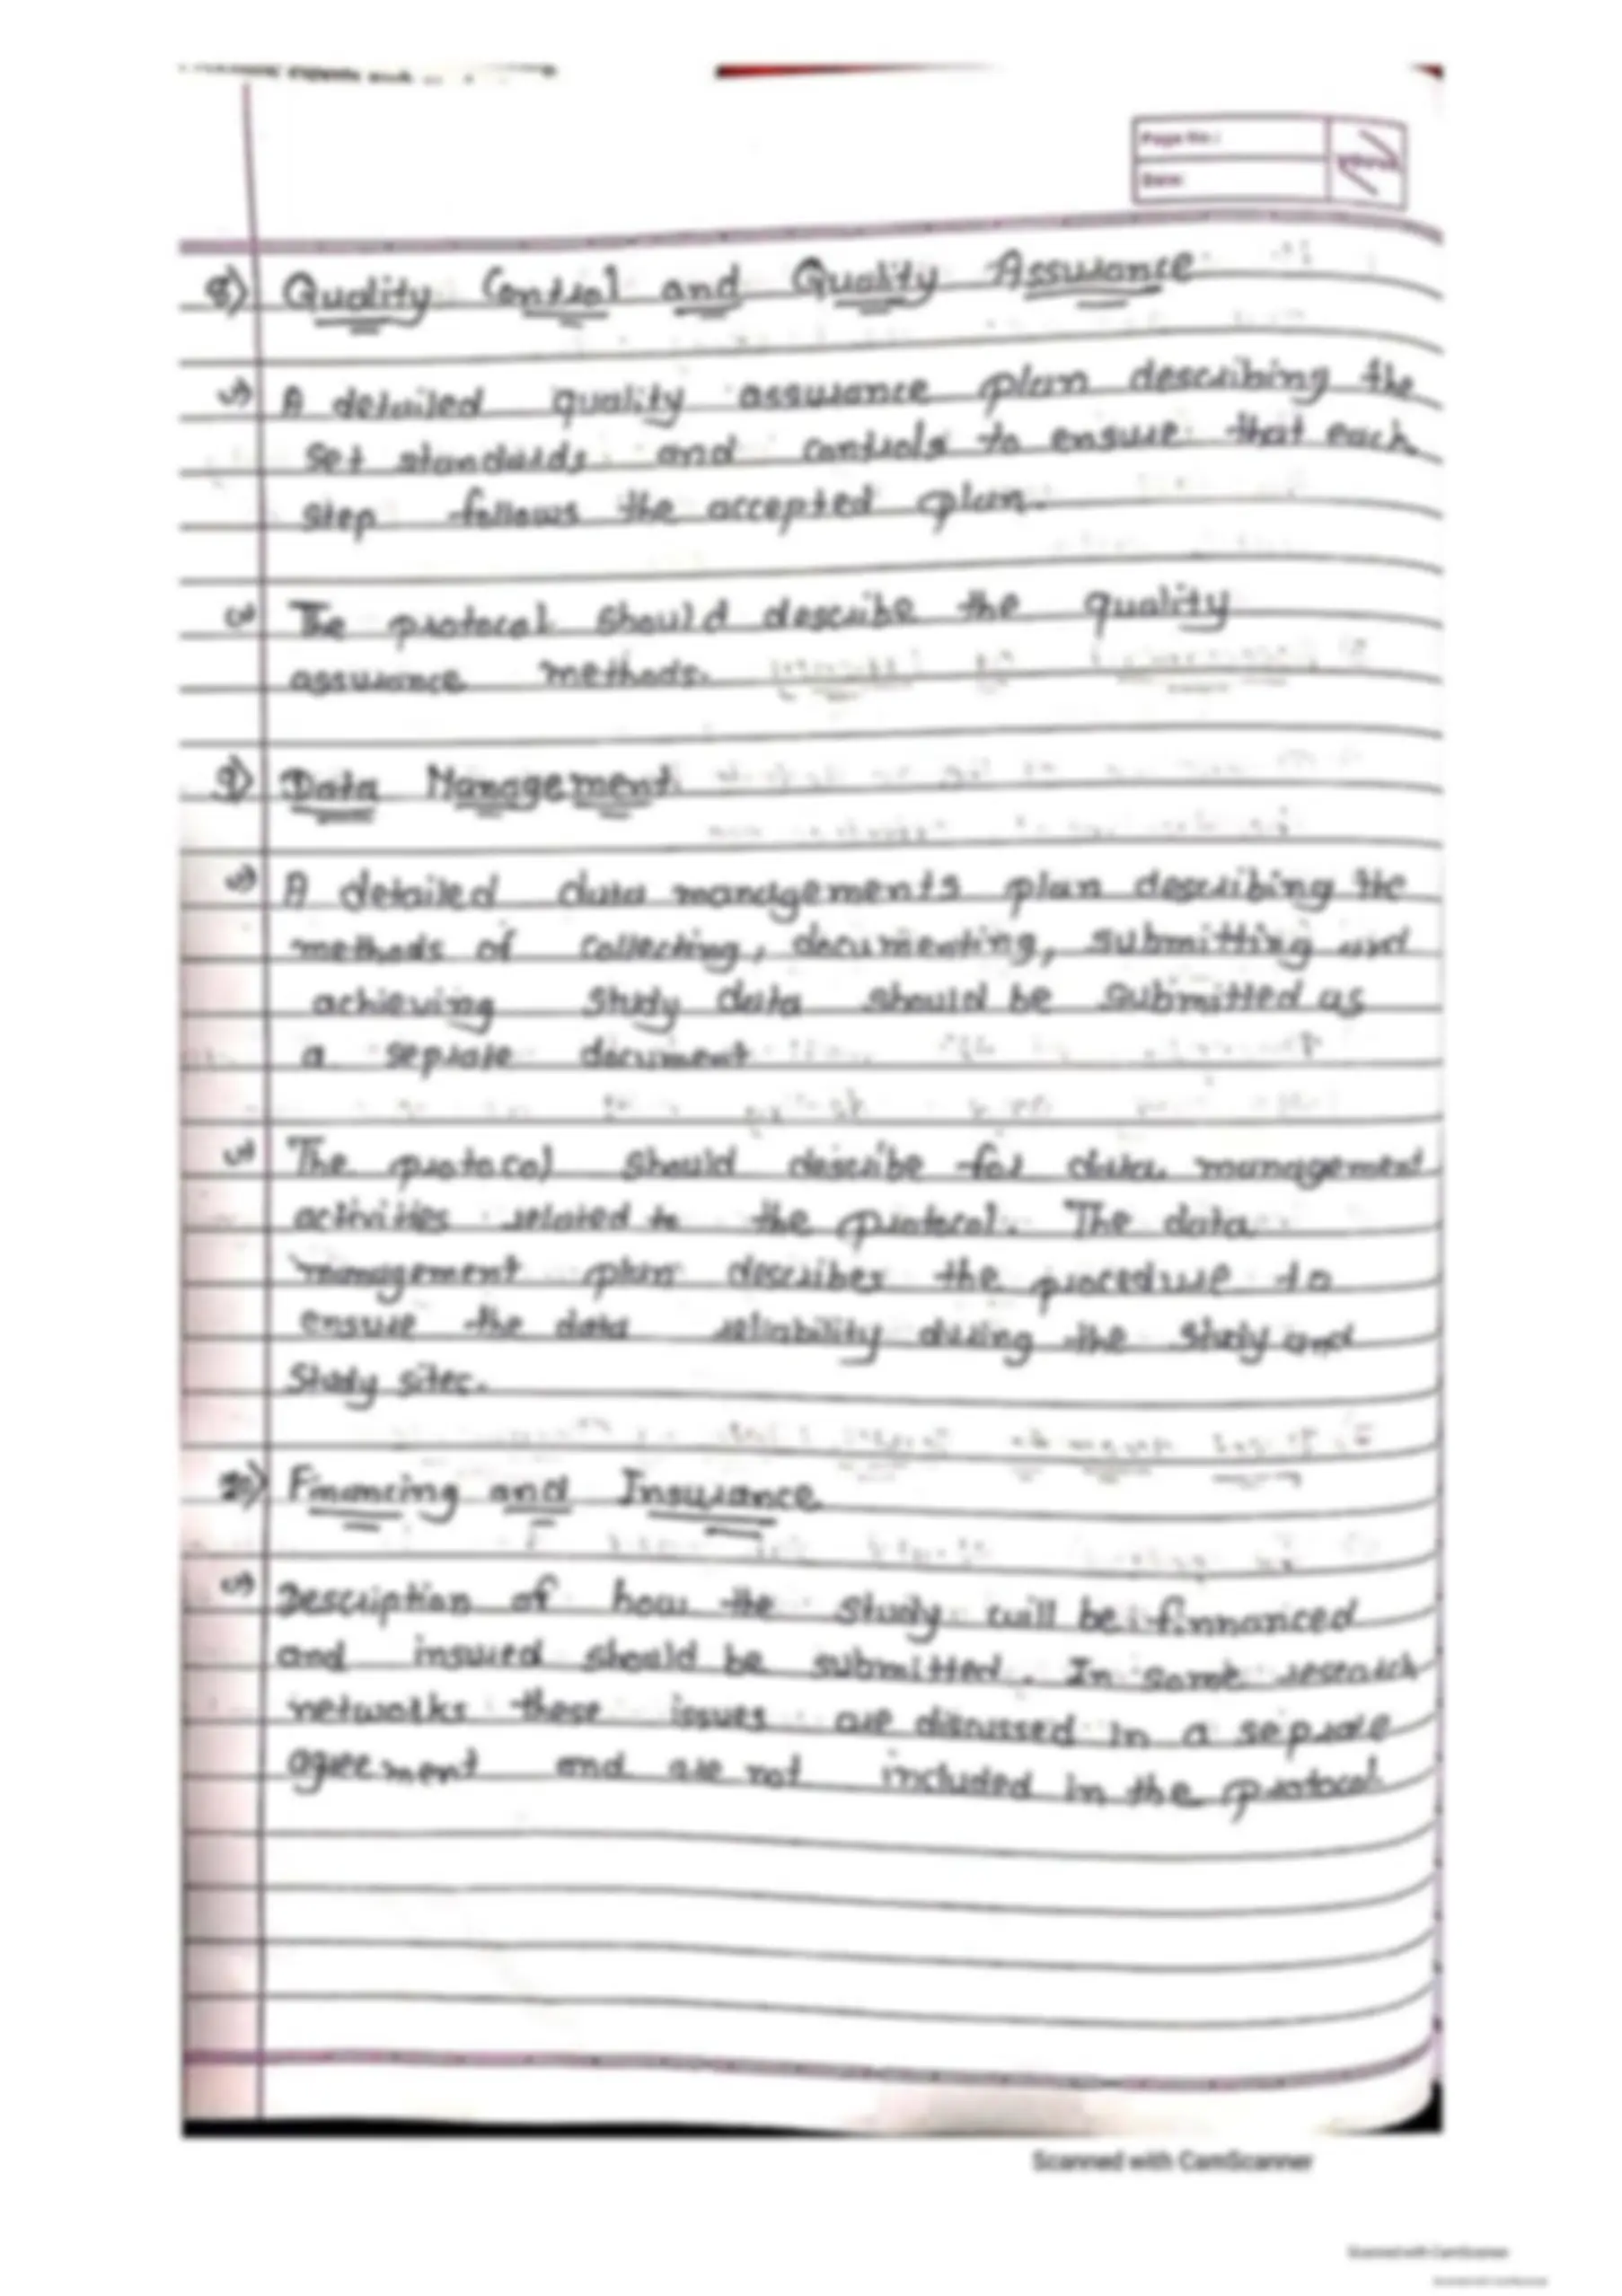 Page No.:
Date:
8) Quality Control and Quality Assurance
A detailed quality assurance plan describing the
set standards and controls to ensure that each
step follows the accepted plan.
The protocol should describe the quality
assurance methods.
9) Data Management
A detailed data managements plan describing the
methods of collecting, documenting, submitting and
achieving study data should be submitted as
a seprate document
The protocol should describe for data management
activities related to the protocol. The data
management plan describes the procedure to
ensure the data reliability during the study and
study sites.
10) Financing and Insurance
Description of how the study will be finnanced
and insured should be submitted. In some research
networks these issues are discussed in a seprate
agreement and are not included in the protocol
Scanned with CamScanner
Scanned with CamScanner